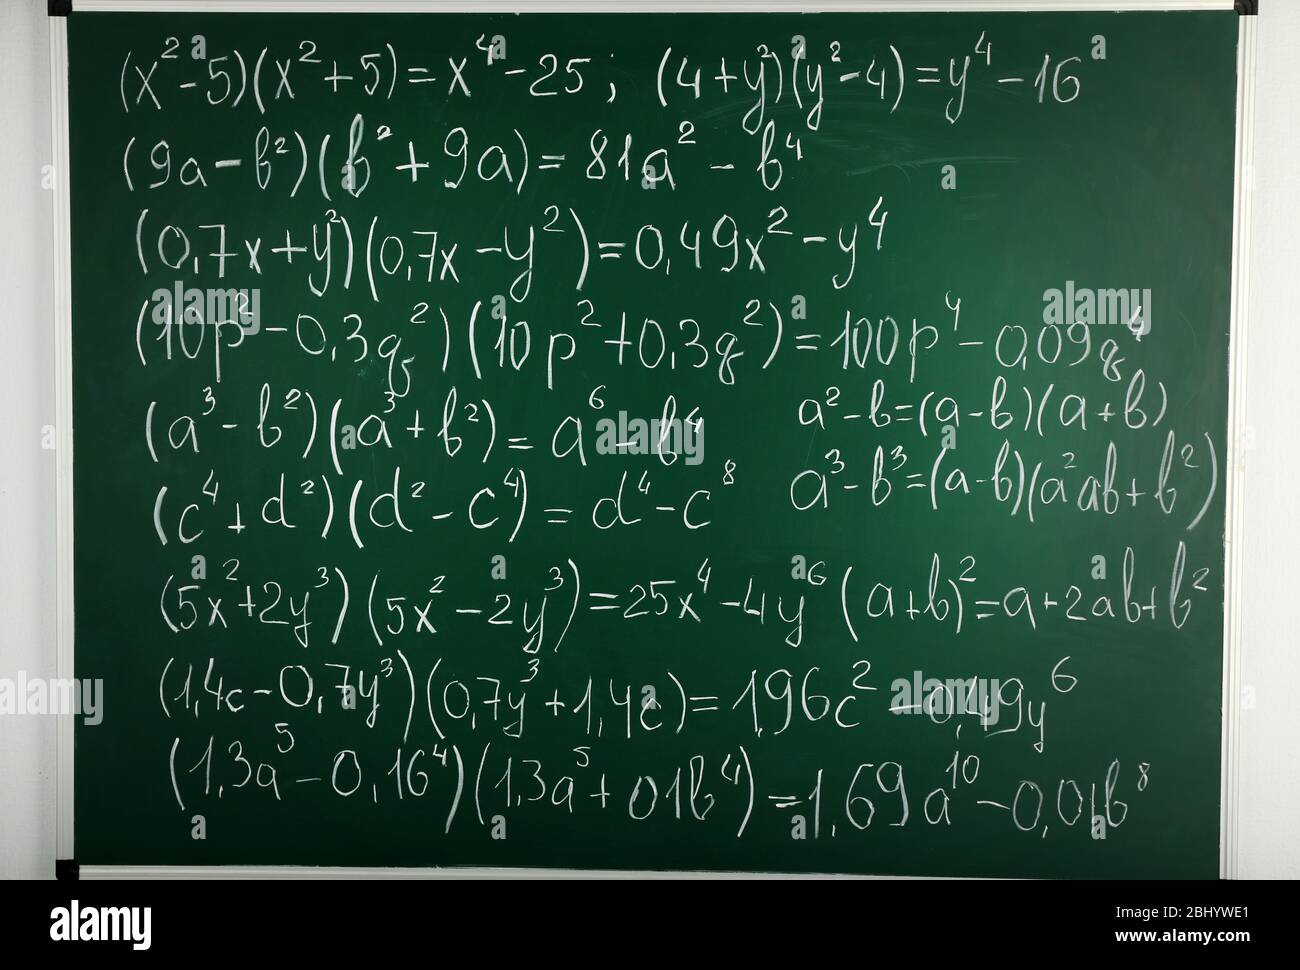 (x²-5)(x²+5)=x⁴-25; (4+y²)(y²-4)=y⁴-16
(9a-b²)(b²+9a)=81a²-b⁴
(0,7x+y²)(0,7x-y²)=0,49x²-y⁴
(10p²-0,3q²)(10p²+0,3q²)=100p⁴-0,09q⁴
(a³-b²)(a³+b²)=a⁶-b⁴
a²-b=(a-b)(a+b)
(c⁴+d²)(d²-c⁴)=d⁴-c⁸
a³-b³=(a-b)(a²ab+b²)
(5x²+2y³)(5x²-2y³)=25x⁴-4y⁶
(a+b)²=a+2ab+b²
(1,4c-0,7y³)(0,7y³+1,4c)=1,96c²-0,49y⁶
(1,3a⁵-0,1б⁴)(1,3a⁵+01b⁴)=1,69a¹⁰-0,01b⁸
alamy
Image ID: 2BHYWE1
www.alamy.com